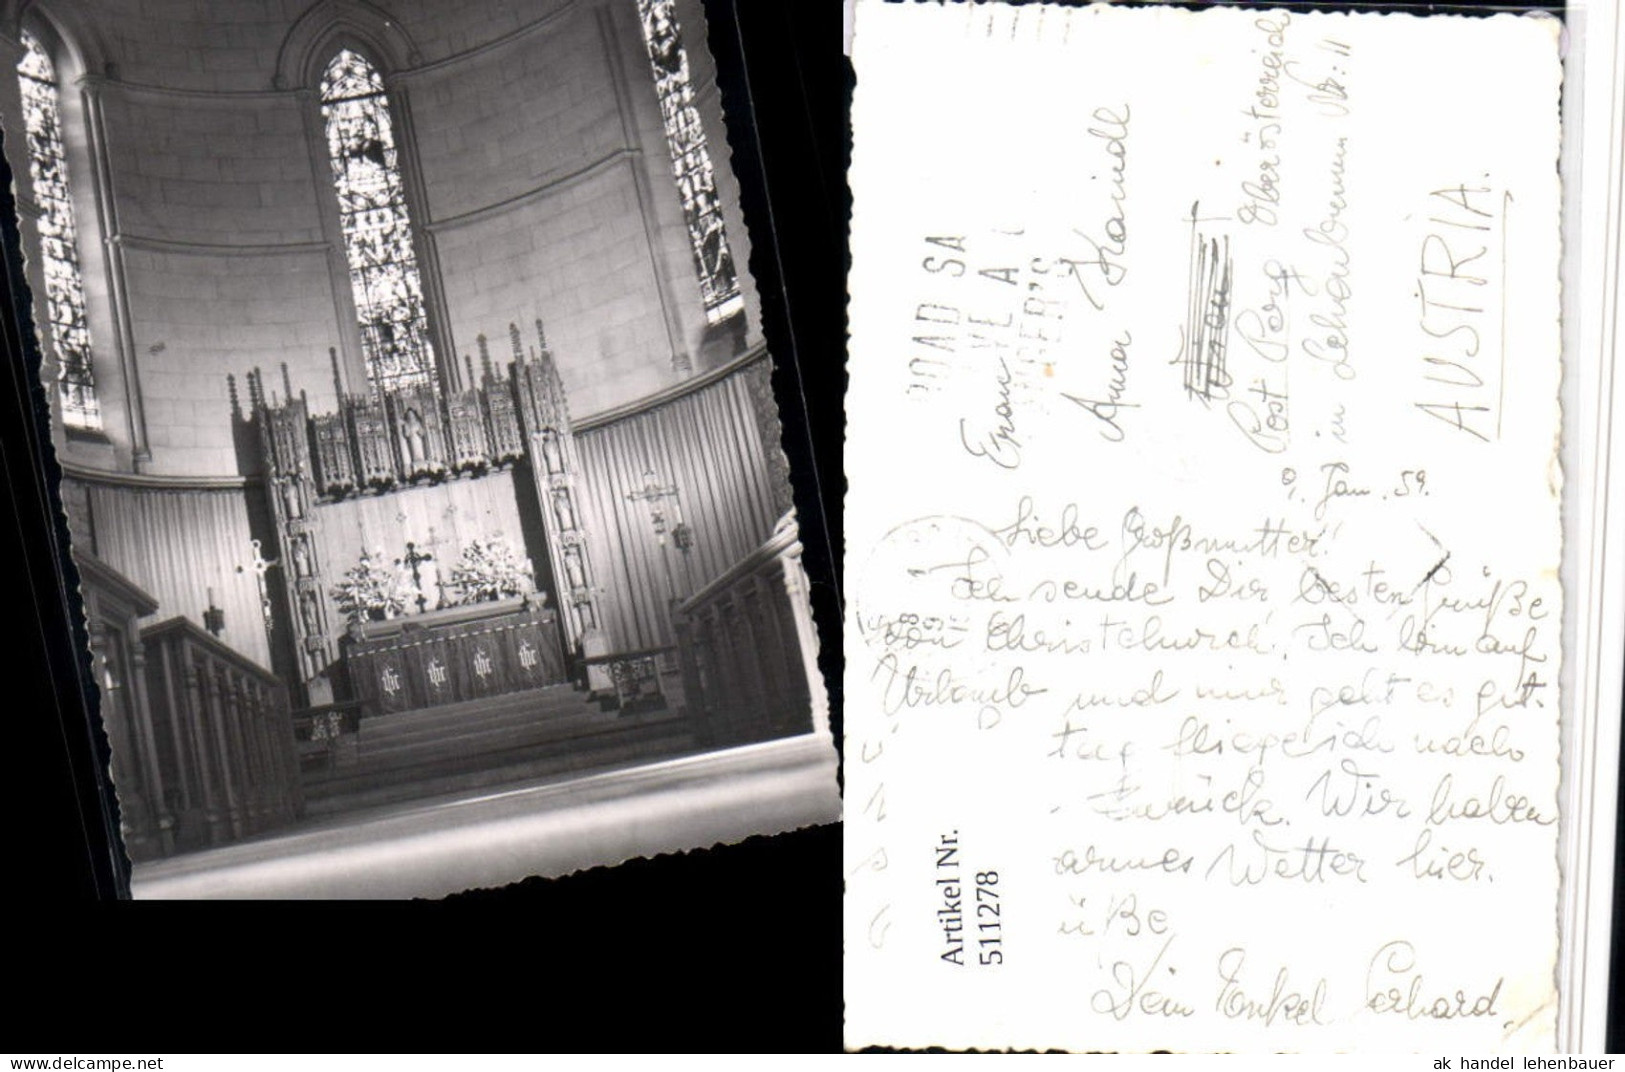 ihc ihc ihc ihc
ROAD SA
VE A
Frau
Anna Kaindl
Post Perg Oberösterreich
in Lehenbrunn Nr: 11
AUSTRIA.
9. Jan. 59.
Liebe Großmutter!
Ich sende Dir besten Grüße
von Christchurch. Ich bin auf
Urlaub und mir geht es gut.
tag fliege ich nach
zurück. Wir haben
armes Wetter hier.
üße
Dein Enkel Gerhard.
Artikel Nr.
511278
ak handel lehenbauer